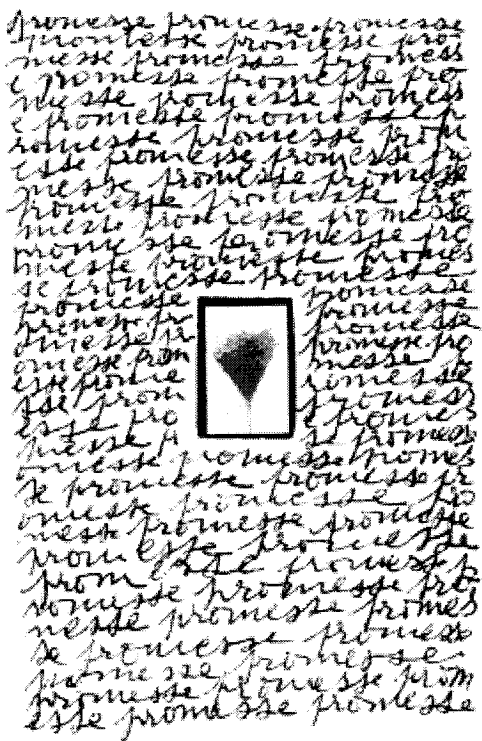 promesse promesse promesse
promesse promesse pro
messe promesse promess
e promesse promesse pro
messe promesse promess
e promesse promesse p
romesse promesse prom
esse promesse promesse pr
messe promesse promesse
promesse promesse pro
messe promesse promesse
promesse promesse pro
messe promesse promes
se promesse promesse
promesse promesse
promesse pr promesse
omesse pr promesse
omesse prom promesse pro
esse promesse messe p
sse prom romesse
esse pro promesse
messe p se promes
omesse promesse promes
se promesse promesse pr
omesse promesse pro
messe promesse promesse
promesse promesse
prom esse promesse p
romesse promesse pro
messe promesse promes
se promesse promess
promesse promesse
promesse promesse prom
esse promesse promesse